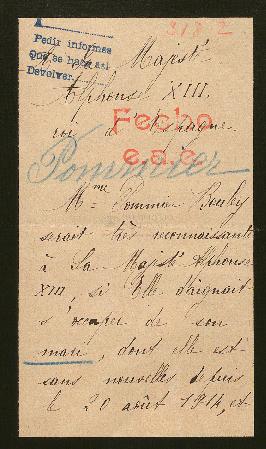 3182
Pedir informes
Que se haga así
Devolver.
A Sa Majesté
Alphonse XIII,
roi d'Espagne
Fecho
e.a.e.
Pommier
Mme Pommier Bouley
serait très reconnaissante
à Sa Majesté Alphonse
XIII, si Elle daignait
s'occuper de son
mari, dont elle est
sans nouvelles depuis
le 20 août 1914, et